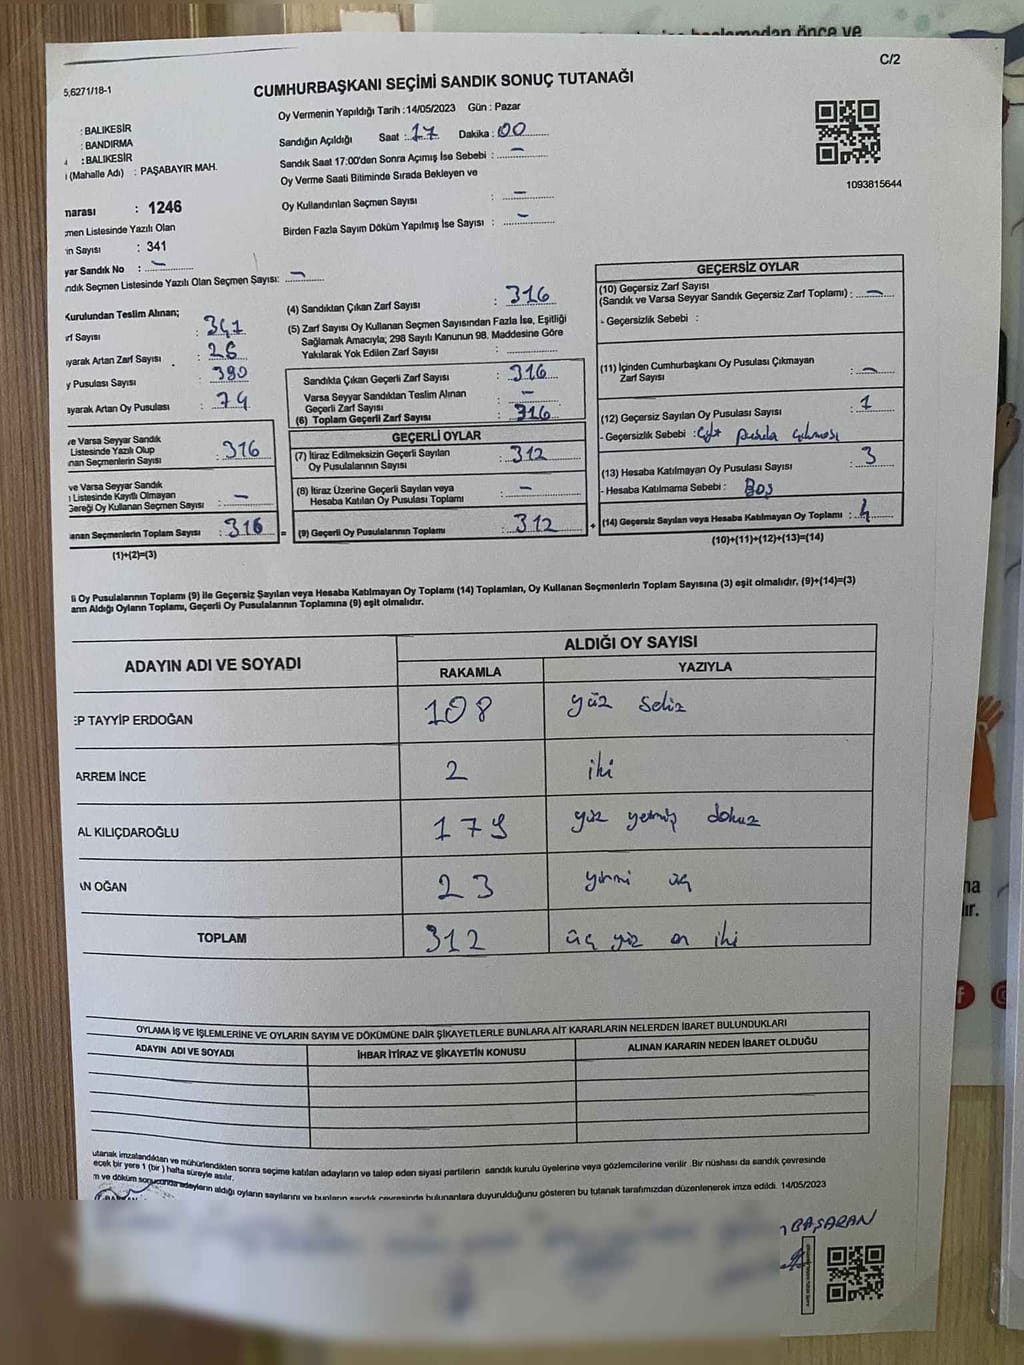 başlamadan önce ve
C/2
5,6271/18-1
CUMHURBAŞKANI SEÇİMİ SANDIK SONUÇ TUTANAĞI
Oy Vermenin Yapıldığı Tarih :14/05/2023 Gün : Pazar
: BALIKESİR
: BANDIRMA
: BALIKESİR
ı (Mahalle Adı) : PAŞABAYIR MAH.
Sandığın Açıldığı Saat : 17 Dakika : 00
Sandık Saat 17:00'den Sonra Açımış İse Sebebi : –
Oy Verme Saati Bitiminde Sırada Bekleyen ve
Oy Kullandırılan Seçmen Sayısı : –
Birden Fazla Sayım Döküm Yapılmış İse Sayısı : –
1093815644
narası : 1246
men Listesinde Yazılı Olan
ın Sayısı : 341
yar Sandık No : –
ndık Seçmen Listesinde Yazılı Olan Seçmen Sayısı: –
Kurulundan Teslim Alınan;
rf Sayısı : 341
yarak Artan Zarf Sayısı : 26
y Pusulası Sayısı : 390
ayarak Artan Oy Pusulası : 74
(4) Sandıktan Çıkan Zarf Sayısı : 316
(5) Zarf Sayısı Oy Kullanan Seçmen Sayısından Fazla İse, Eşitliği
Sağlamak Amacıyla; 298 Sayılı Kanunun 98. Maddesine Göre
Yakılarak Yok Edilen Zarf Sayısı :
Sandıkta Çıkan Geçerli Zarf Sayısı : 316
Varsa Seyyar Sandıktan Teslim Alınan
Geçerli Zarf Sayısı : –
(6) Toplam Geçerli Zarf Sayısı : 316
GEÇERLİ OYLAR
(7) İtiraz Edilmeksizin Geçerli Sayılan
Oy Pusulalarının Sayısı : 312
(8) İtiraz Üzerine Geçerli Sayılan veya
Hesaba Katılan Oy Pusulası Toplamı : –
(9) Geçerli Oy Pusulalarının Toplamı : 312
ve Varsa Seyyar Sandık
Listesinde Yazılı Olup
nan Seçmenlerin Sayısı : 316
ve Varsa Seyyar Sandık
ı Listesinde Kayıtlı Olmayan
Gereği Oy Kullanan Seçmen Sayısı : –
anan Seçmenlerin Toplam Sayısı : 316 =
(1)+(2)=(3)
GEÇERSİZ OYLAR
(10) Geçersiz Zarf Sayısı
(Sandık ve Varsa Seyyar Sandık Geçersiz Zarf Toplamı) : –
- Geçersizlik Sebebi :
(11) İçinden Cumhurbaşkanı Oy Pusulası Çıkmayan
Zarf Sayısı : –
(12) Geçersiz Sayılan Oy Pusulası Sayısı : 1
- Geçersizlik Sebebi : Çift pusula çıkması
(13) Hesaba Katılmayan Oy Pusulası Sayısı : 3
- Hesaba Katılmama Sebebi : Boş
+ (14) Geçersiz Sayılan veya Hesaba Katılmayan Oy Toplamı : 4
(10)+(11)+(12)+(13)=(14)
li Oy Pusulalarının Toplamı (9) ile Geçersiz Sayılan veya Hesaba Katılmayan Oy Toplamı (14) Toplamları, Oy Kullanan Seçmenlerin Toplam Sayısına (3) eşit olmalıdır. (9)+(14)=(3)
arın Aldığı Oyların Toplamı, Geçerli Oy Pusulalarının Toplamına (9) eşit olmalıdır.
ADAYIN ADI VE SOYADI
ALDIĞI OY SAYISI
RAKAMLA YAZIYLA
EP TAYYİP ERDOĞAN 108 yüz sekiz
ARREM İNCE 2 iki
AL KILIÇDAROĞLU 179 yüz yetmiş dokuz
AN OĞAN 23 yirmi üç
TOPLAM 312 üç yüz on iki
OYLAMA İŞ VE İŞLEMLERİNE VE OYLARIN SAYIM VE DÖKÜMÜNE DAİR ŞİKAYETLERLE BUNLARA AİT KARARLARIN NELERDEN İBARET BULUNDUKLARI
ADAYIN ADI VE SOYADI İHBAR İTİRAZ VE ŞİKAYETİN KONUSU ALINAN KARARIN NEDEN İBARET OLDUĞU
utanak imzalandıktan ve mühürlendikten sonra seçime katılan adayların ve talep eden siyasi partilerin sandık kurulu üyelerine veya gözlemcilerine verilir .Bir nüshası da sandık çevresinde
ecek bir yere 1 (bir ) hafta süreyle asılır.
m ve döküm sonucunda adayların aldığı oyların sayılarını ve bunların sandık çevresinde bulunanlara duyurulduğunu gösteren bu tutanak tarafımızdan düzenlenerek imza edildi. 14/05/2023
BAŞARAN
na
ır.